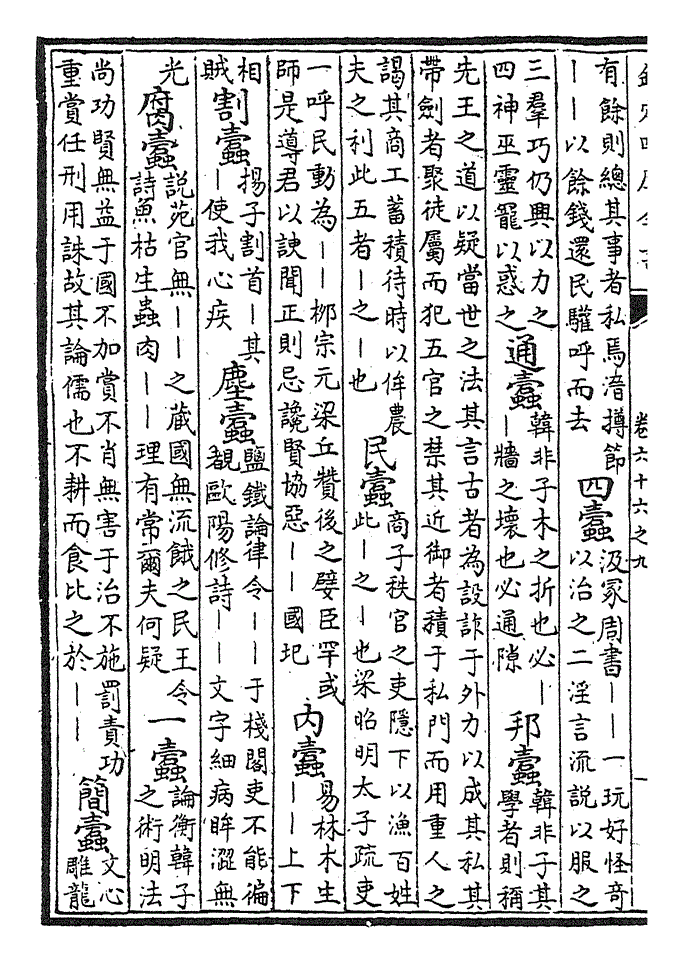 卷六十六之九
有餘則總其事者私焉渰撙節
丨丨以餘錢還民驩呼而去
四蠹
汲冢周書丨丨一玩好怪奇
以治之二淫言流說以服之
三羣巧仍興以力之
四神巫靈寵以惑之
通蠹
韓非子木之折也必丨
丨牆之壞也必通隙
邦蠹
韓非子其
學者則稱
先王之道以疑當世之法其言古者為設詐于外力以成其私其
帶劍者聚徒屬而犯五官之禁其近御者積于私門而用重人之
謁其商工蓄積待時以侔農
夫之利此五者丨之丨也
民蠹
商子秩官之吏隱下以漁百姓
此丨之丨也梁昭明太子疏吏
一呼民動為丨丨栁宗元梁丘贊後之嬖臣罕或
師是導君以諛聞正則忌讒賢協惡丨丨國圮
內蠹
易林木生
丨丨上下
相
賊
割蠹
揚子割首丨其
丨使我心疾
塵蠹
鹽鐵論律令丨丨于棧閣吏不能徧
覩歐陽修詩丨丨文字細病眸澀無
光
腐蠹
說苑官無丨丨之藏國無流餓之民王令
詩魚枯生蟲肉丨丨理有常爾夫何疑
一蠹
論衡韓子
之術明法
尚功賢無益于國不加賞不肖無害于治不施罰責功
重賞任刑用誅故其論儒也不耕而食比之於丨丨
簡蠹
文心
雕龍